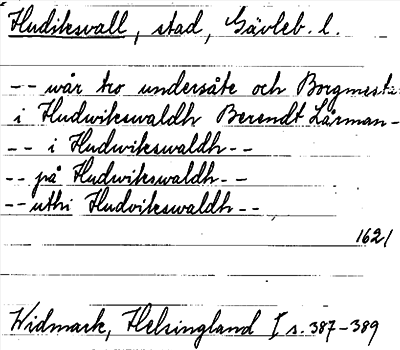 Hudiksvall, stad, Gävleb. l.
-- wår tro undersåte och Borgmest
i Hudwikswaldh Berendt Lårman-
-- i Hudwikswaldh--
-- på Hudwikswaldh--
-- uthi Hudvikswaldh--
1621
Widmark, Helsingland I s. 387-389